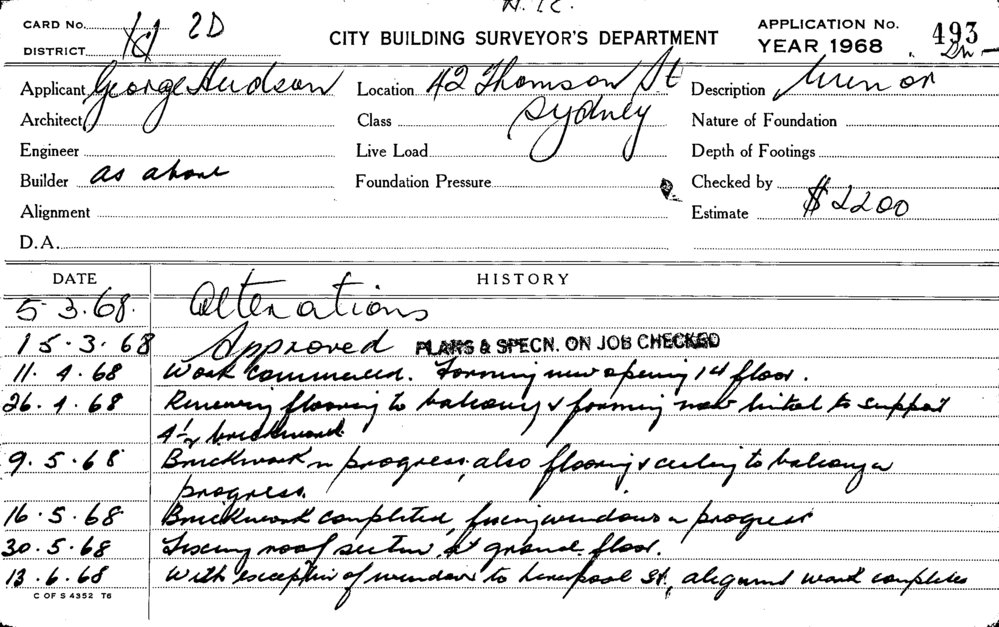 CARD No. 2D
DISTRICT
CITY BUILDING SURVEYOR'S DEPARTMENT
APPLICATION No. 493
YEAR 1968
Applicant George Hudson
Location 42 Thomson St
Sydney
Description Minor
Architect
Class
Nature of Foundation
Engineer
Live Load
Depth of Footings
Builder as above
Foundation Pressure
Checked by
Alignment
Estimate $2200
D.A.
DATE HISTORY
5.3.68. Alterations
15.3.68 Approved PLANS & SPECN. ON JOB CHECKED
11.4.68 Work commenced. Forming new opening 1st floor.
26.4.68 Renewing flooring to balcony & forming new lintel to support
4½ brickwork
9.5.68 Brickwork in progress, also flooring & ceiling to balcony in
progress.
16.5.68 Brickwork completed, fixing windows in progress
30.5.68 Fixing roof ground floor.
13.6.68 With exception of window to Liverpool St, work completed
C OF S 4352 T6